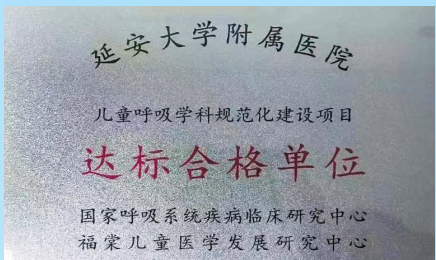 延安大学附属医院
儿童呼吸学科规范化建设项目
达标合格单位
国家呼吸系统疾病临床研究中心
福棠儿童医学发展研究中心